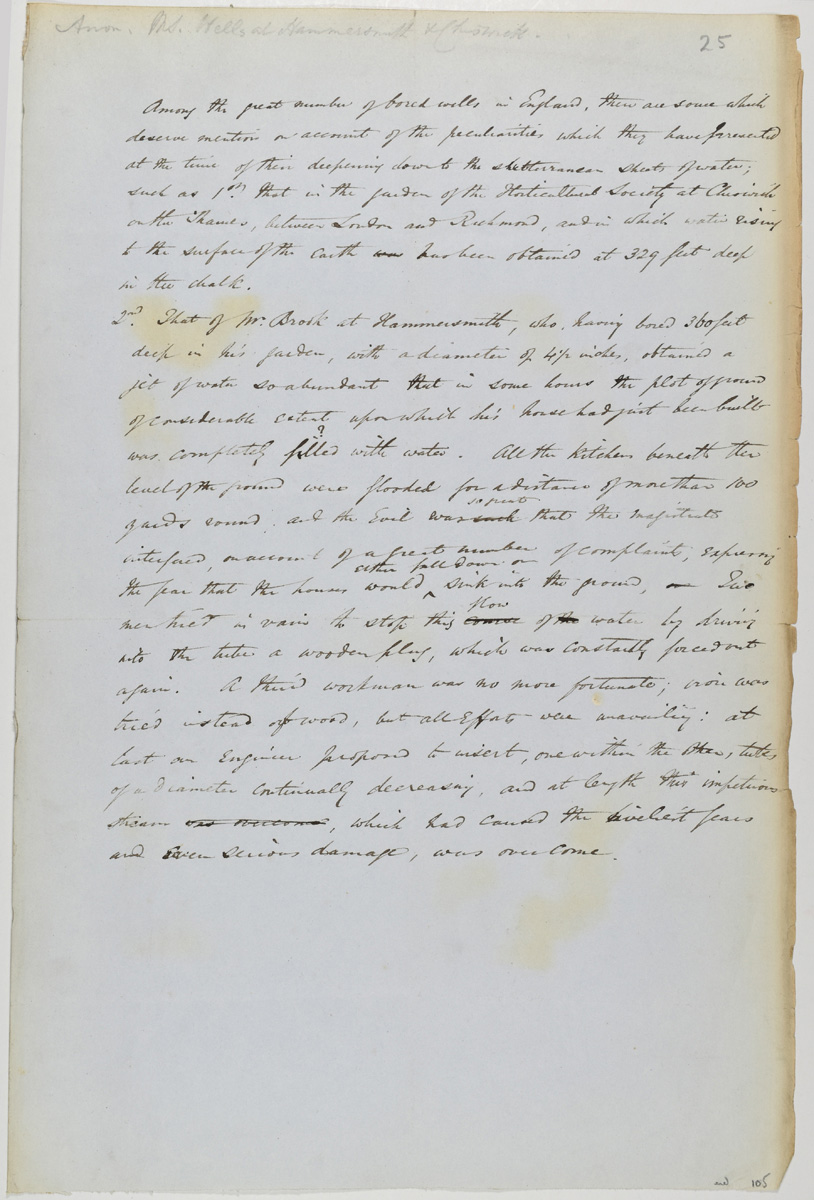 Anon. MS. Wells at Hammersmith & Chiswick.
25
Among the great number of bored wells in England, there are some which
deserve mention on account of the peculiarities which they have presented
at the time of their deepening down to the subterranean sheets of water;
such as 1st. that in the garden of the Horticultural Society at Chiswick
on the Thames, between London and Richmond, and in which water rising
to the surface of the earth was has been obtained at 329 feet deep
in the chalk.
2nd. That of Mr. Brook at Hammersmith, who, having bored 360 feet
deep in his garden, with a diameter of 4 1/2 inches, obtained a
jet of water so abundant that in some hours the plot of ground
of considerable extent upon which his house had just been built
?
was completely filled with water. All the kitchens beneath the
level of the ground were flooded for a distance of more than 100
so great
yards round, and the Evil was such that the magistrate
interfered, on account of a great number of complaints, expressing
either fall down or
the fear that the houses would sink into the ground, Two
flow
men tried in vain to stop this course of the water by driving
into the tube a wooden plug, which was constantly forced out
again. A third workman was no more fortunate; iron was
tried instead of wood, but all Efforts were unavailing: at
last an Engineer proposed to insert, one within the other, tubes
of a diameter continually decreasing, and at length this impetuous
stream was overcome, which had caused the liveliest fears
and Even serious damage, was overcome.
end 105